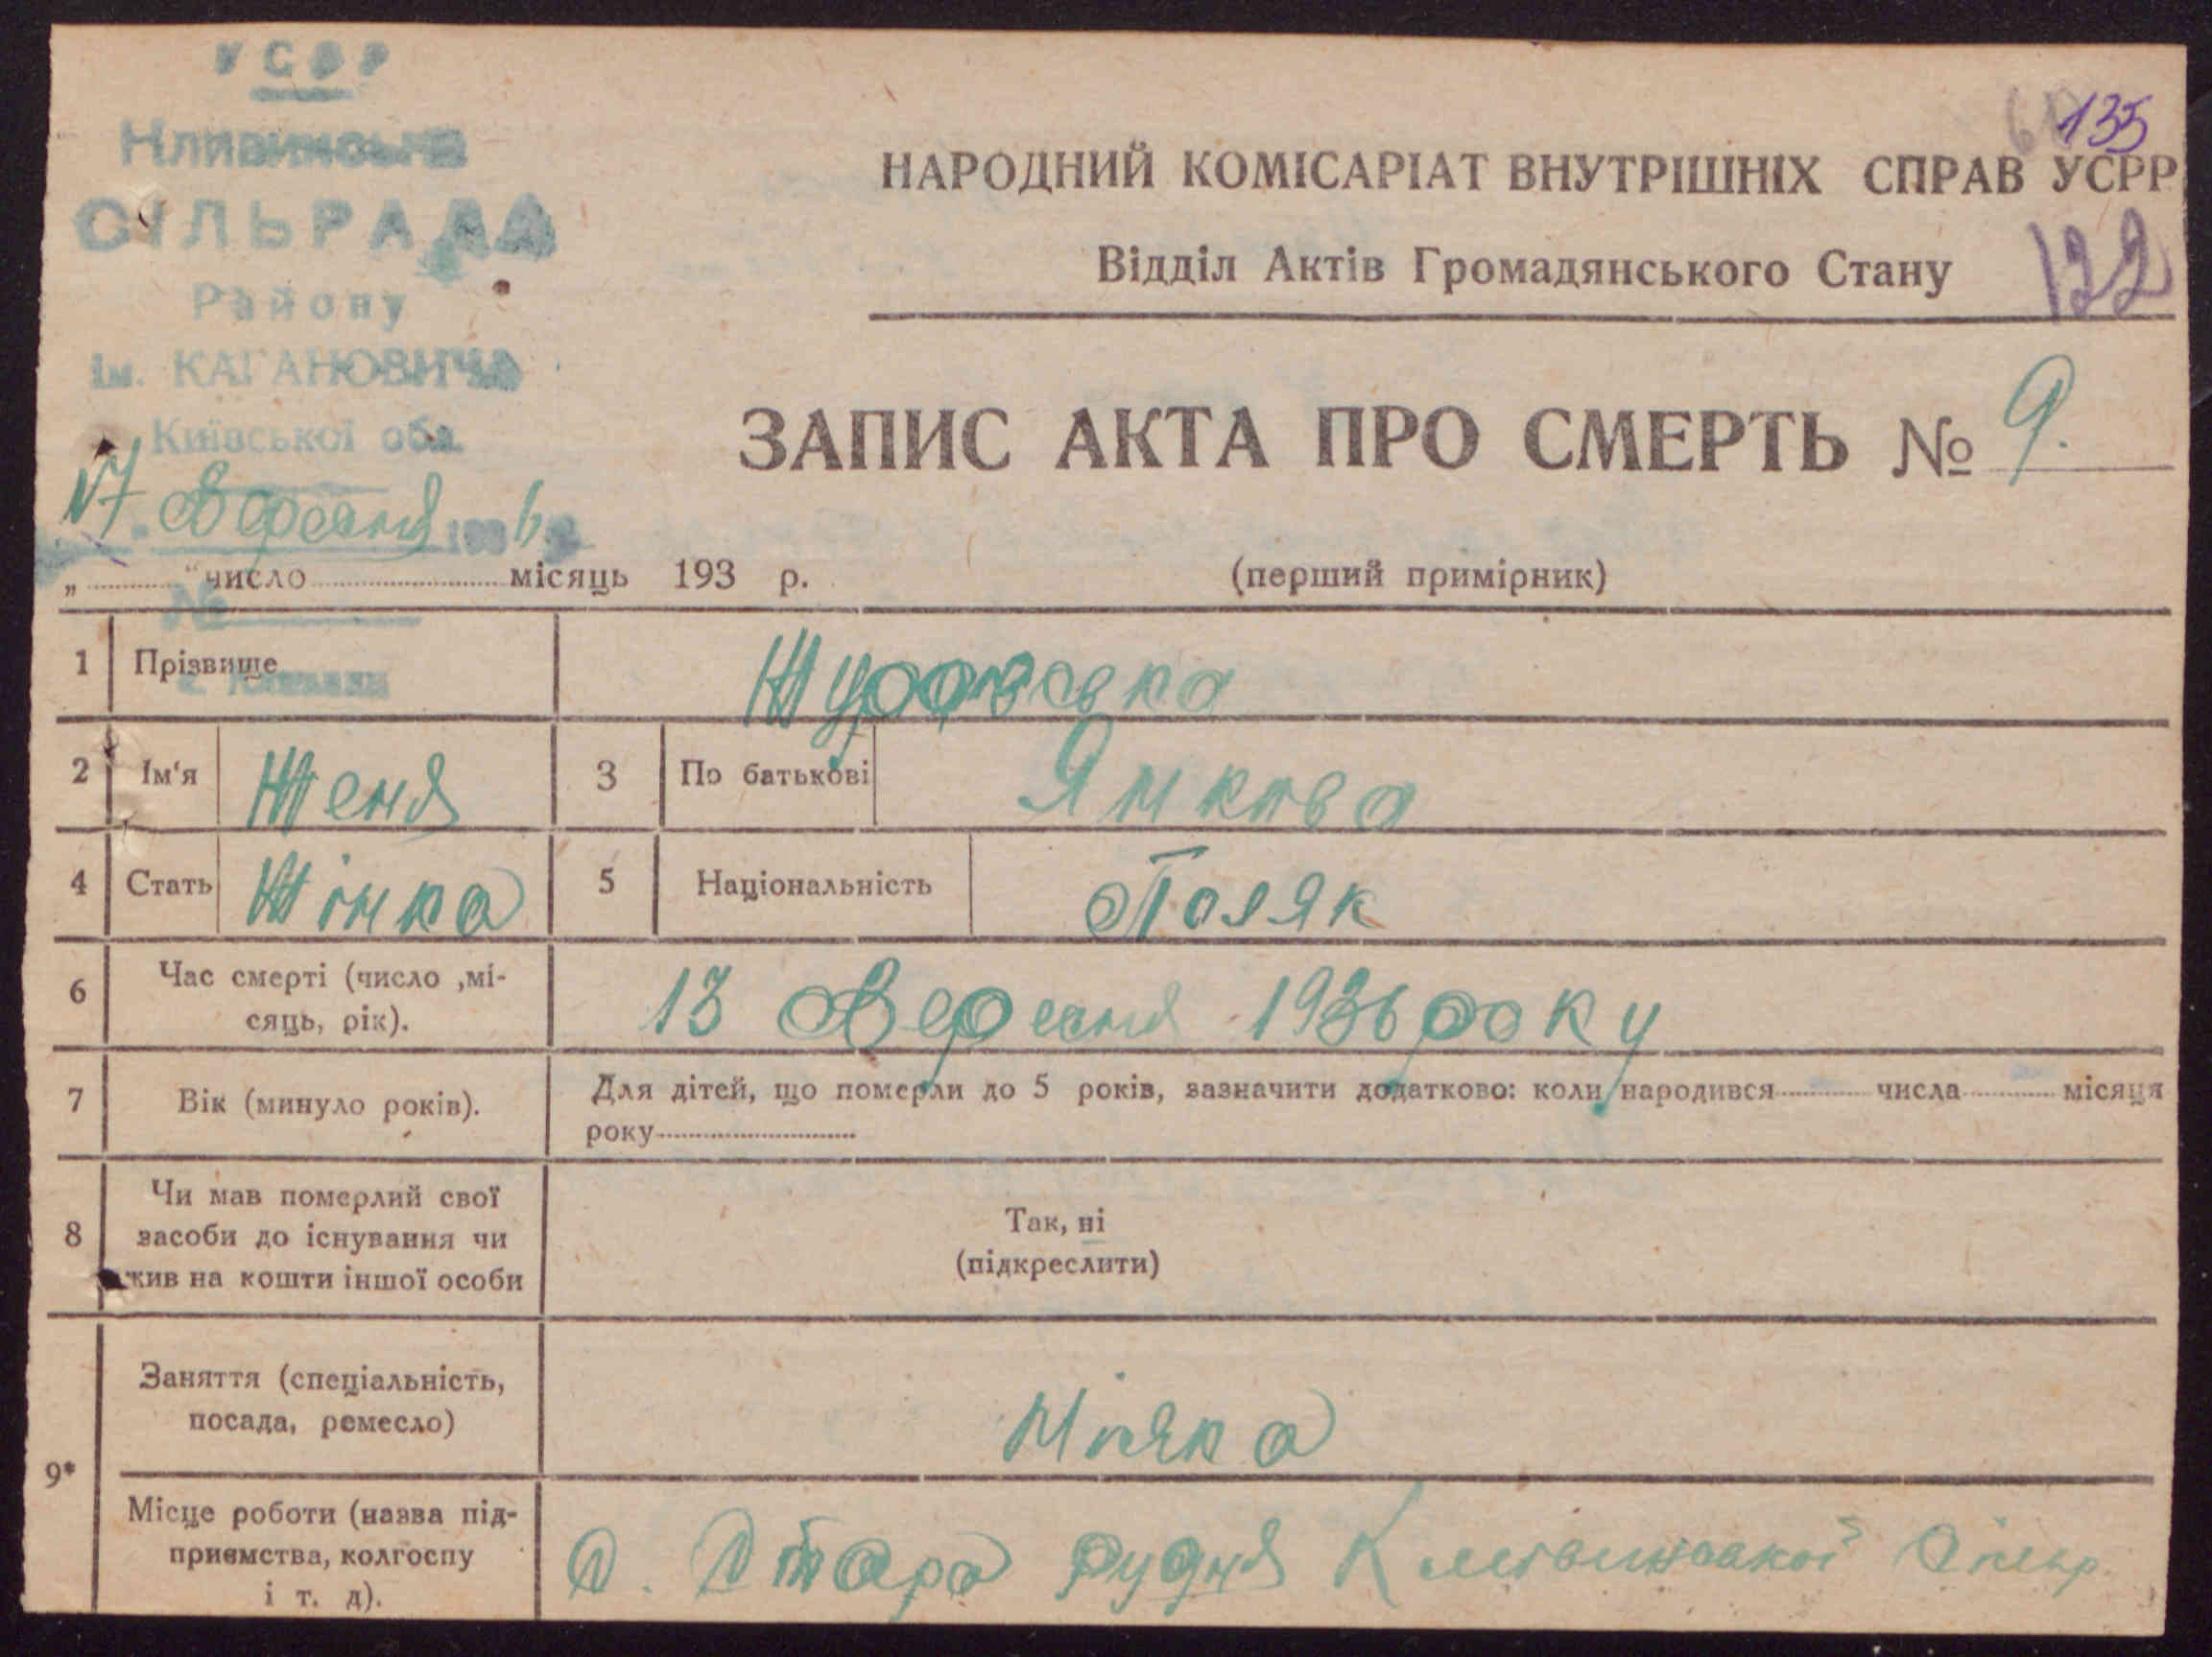 УСРР
Кливинська
СІЛЬРАДА
Району
ім. КАГАНОВИЧА
Київської обл.
17 Вересня 1936
№
135
НАРОДНИЙ КОМІСАРІАТ ВНУТРІШНІХ СПРАВ УСРР
Відділ Актів Громадянського Стану
122
ЗАПИС АКТА ПРО СМЕРТЬ № 9.
„ “ число місяць 193 р.
(перший примірник)
1 Прізвище
2 Ім‘я Женя 3 По батькові
4 Стать Жінка 5 Національність Поляк
6 Час смерті (число ,мі-
сяць, рік).
13 Вересня 1936 року
7 Вік (минуло років).
Для дітей, що померли до 5 років, зазначити додатково: коли народився числа місяця
року
8 Чи мав померлий свої
засоби до існування чи
жив на кошти іншої особи
Так, ні
(підкреслити)
9* Заняття (спеціальність,
посада, ремесло)
Місце роботи (назва під-
приємства, колгоспу
і т. д).
С. Стара Рудня Кливинської Сільр.